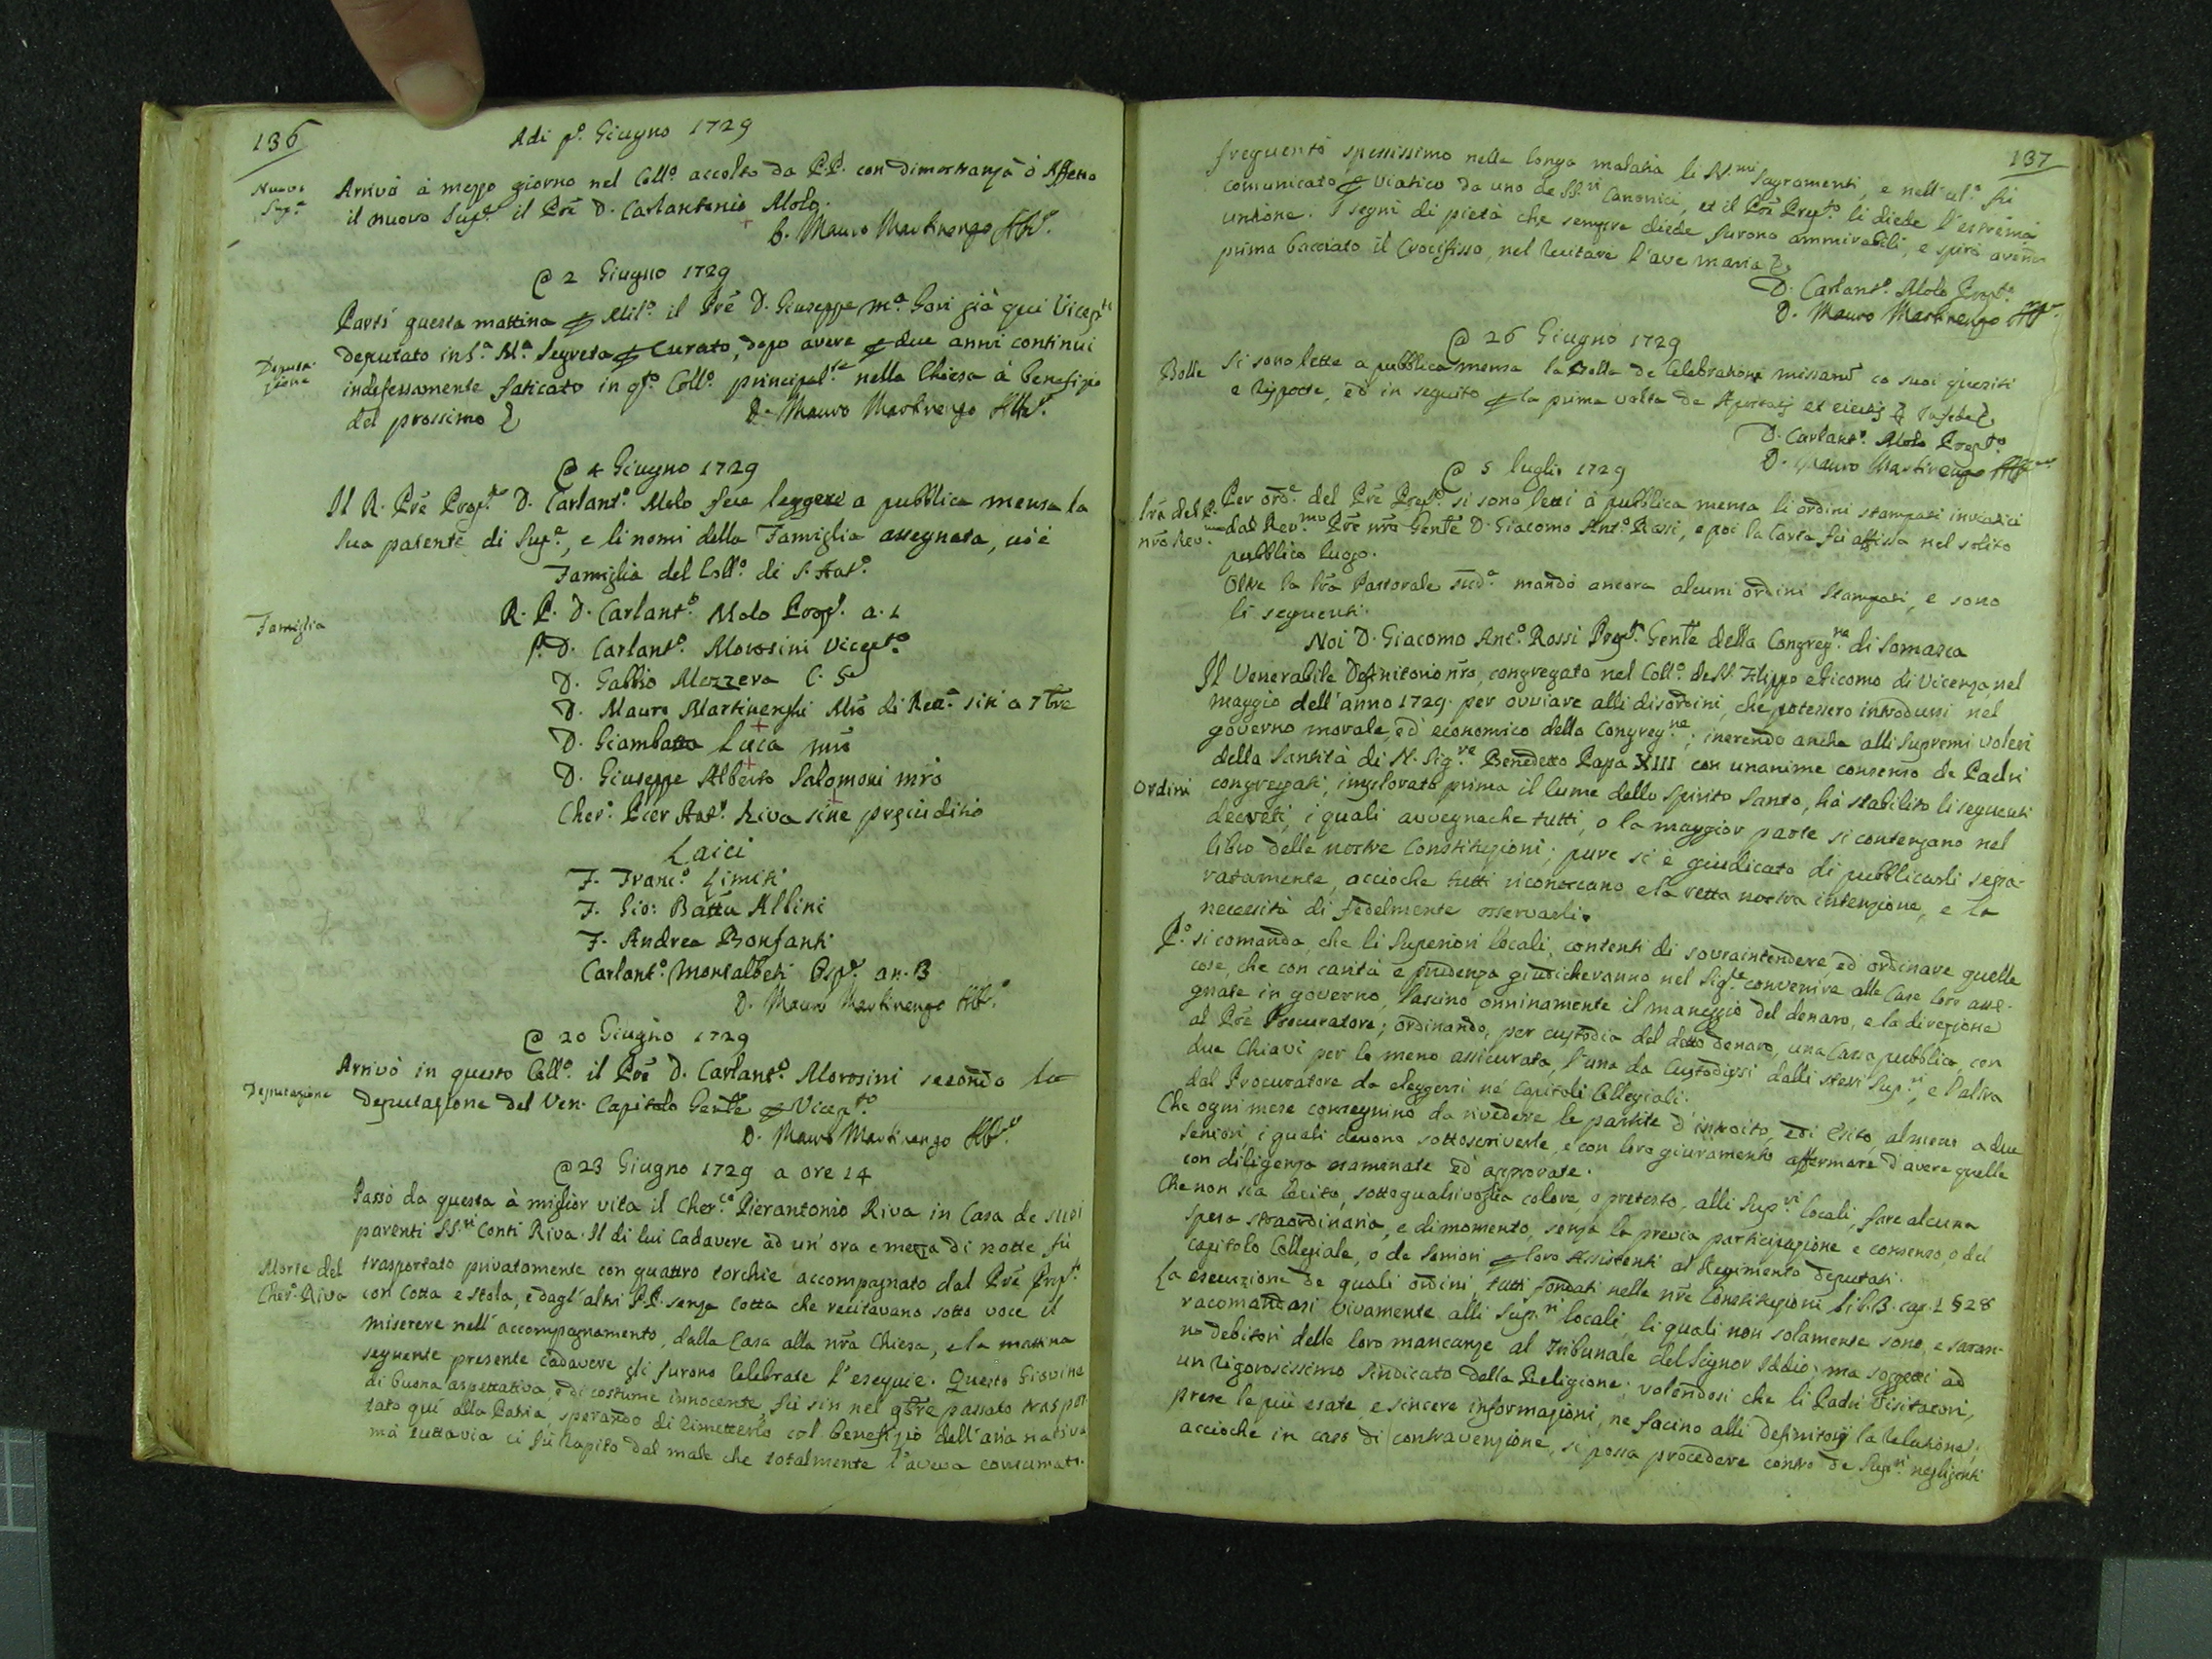 136
Adi p.º Giugno 1729
Nuovo
Sup.e
Arrivò à mezzo giorno nel Coll.º accolto da P.P. con dimostranza d'Affetto
il nuovo Sup.e il Prē D. Carlantonio Molo.
D. Mauro Martinengo Att.º
@ 2 Giugno 1729
Partì questa mattina per Mil.º il Prē D. Giuseppe M.a Gori già qui Vicep.to
Deputa-
zione
deputato in S.a M.a Segreta per Curato, dopo avere per due anni continui
indefessamente faticato in q.to Coll.º principal.te nella Chiesa à benefizio
del prossimo
D. Mauro Martinengo Att.º
@ 4 Giugno 1729
Il R. Prē Prep.to D. Carlant.º Molo fece leggere a pubblica mensa la
sua patente di Sup.e, e li nomi della Famiglia assegnata, cioè
Famiglia del Coll.º di S. Ant.º
Famiglia
R. P. D. Carlant.º Molo Prep.to a. 1
P. D. Carlant.º Morosini Vicep.to
D. Gabbio Mozzera C. S.
D. Mauro Martinenghi Mrō di Ret.a sin a 7bre
D. Giambatta Luca mrō
D. Giuseppe Alberto Salomoni mrō
Cher.º Pier Ant.º Riva sine prejuditio
Laici
F. Franc.º Limiti
F. Gio: Batta Allini
F. Andrea Bonfanti
Carlant.º Montalbeti Osp.e an. 3
D. Mauro Martinengo Att.º
@ 20 Giugno 1729
Arrivò in questo Coll.º il Prē D. Carlant.º Morosini secondo la
Deputazione
deputazione del Ven. Capitolo Gen̄le per Vicep.to
D. Mauro Martinengo Att.º
@ 23 Giugno 1729 a ore 14
Passò da questa à miglior vita il Cher.co Pierantonio Riva in Casa de suoi
parenti SS.ri Conti Riva. Il di lui Cadavere ad un' ora e mezza di notte fù
Morte del
Cher.º Riva
trasportato privatamente con quattro torchie accompagnato dal Prē Prep.to
con Cotta e stola, e dagl'altri P.P. senza Cotta che recitavano sotto voce il
miserere nell'accompagnamento, dalla Casa alla nr̄a Chiesa, e la mattina
seguente presente cadavere gli furono Celebrate l'esequie. Questo Giovine
di buona aspettativa, e di costume innocente, fù sin nel 9bre passato traspor
tato quì alla Patria, sperando di rimetterlo col benefizio dell'aria nativa
mà tuttavia ci fù Rapito dal male che totalmente l'aveva consumato.
137
frequentò spessissimo nella longa malatia li SS.mi Sagramenti, e nell'ul.º fù
comunicato per Viatico da uno de SS.ri Canonici, et il Prē Prep.to li diede l'estrema
unzione. I segni di pietà che sempre diede furono ammirabili, e spirò avendo
prima bacciato il Crocifisso, nel recitare l'ave maria
D. Carlant.º Molo Prep.to
D. Mauro Martinengo Att.º
@ 26 Giugno 1729
Bolle
Si sono lette a pubblica mensa la Bolla de Celebratione missarū co suoi quesiti
e risposte, ed in seguito per la prima volta de Apostatis et eiectis
D. Carlant.º Molo Prep.to
D. Mauro Martinengo Att.º
@ 5 luglio 1729
Lr̄a del P.
nr̄o Rev.mo
Per ord.e del Prē Prep.to si sono letti à pubblica mensa li ordini stampati inviatici
dal Rev.mo Prē nr̄o Gen̄le D. Giacomo Ant.º Rossi, e poi la Carta fù affissa nel solito
pubblico luogo.
Oltre la lr̄a Pastorale sud.a mandò ancora alcuni ordini stampati, e sono
li seguenti.
Noi D. Giacomo Ant.º Rossi Prep.to Gen̄le della Congreg.ne di Somasca
Il Venerabile Definitorio nr̄o, congregato nel Coll.º de SS. Filippo e Giacomo di Vicenza nel
maggio dell'anno 1729. per ovviare alli disordini, che potessero introdursi nel
governo morale, ed economico della Congreg.ne; inerendo anche alli Supremi voleri
della Santità di N. Sig.re Benedetto Papa XIII con unanime consenso de Padri
Ordini
congregati, implorato prima il lume dello Spirito Santo, hà stabilito li seguenti
decreti, i quali avvegnache tutti, o la maggior parte si contengano nel
libro delle nostre Constituzioni; pure si è giudicato di pubblicarli sepa-
ratamente, accioche tutti riconoscano e la retta nostra intenzione, e la
necessità di fedelmente osservarli.
P.º si comanda, che li Superiori locali, contenti di sovraintendere, ed ordinare quelle
cose, che con carità e prudenza giudicheranno nel Sig.re convenire alle Case loro asse-
gnate in governo, lascino onninamente il maneggio del denaro, e la direzione
al Prē Procuratore; ordinando, per custodia del detto denaro, una Cassa pubblica, con
due Chiavi per lo meno assicurata, l'una da Custodirsi dalli stessi Sup.ri, e l'altra
dal Procuratore da eleggersi né Capitoli Collegiali.
Che ogni mese consegnino da rivedere le partite d'introito, e di esito, almeno a due
Seniori, i quali devono sottoscriverle, e con loro giuramento affermare d'avere quelle
con diligenza esaminate ed approvate.
Che non sia lecito, sotto qualsivoglia colore, o pretesto, alli Sup.ri locali, fare alcuna
spesa straordinaria, e di momento, senza la previa participazione e consenso, o del
capitolo Collegiale, o de Seniori per loro Assistenti al Regimento deputati.
La esecuzione de quali ordini, tutti fondati nelle nr̄e Constituzioni lib. 3. cap. 1 § 28
racomandasi vivamente alli Sup.ri locali, li quali non solamente sono, e saran-
no debitori delle loro mancanze al Tribunale del Signor Iddio; ma soggetti ad
un Rigorosissimo sindicato della Religione; volendosi che li Padri Visitatori,
prese le più esate, e sincere informazioni, ne facino alli definitorj la relazione,
accioche in caso di contravenzione, si possa procedere contro de Sup.ri negligenti